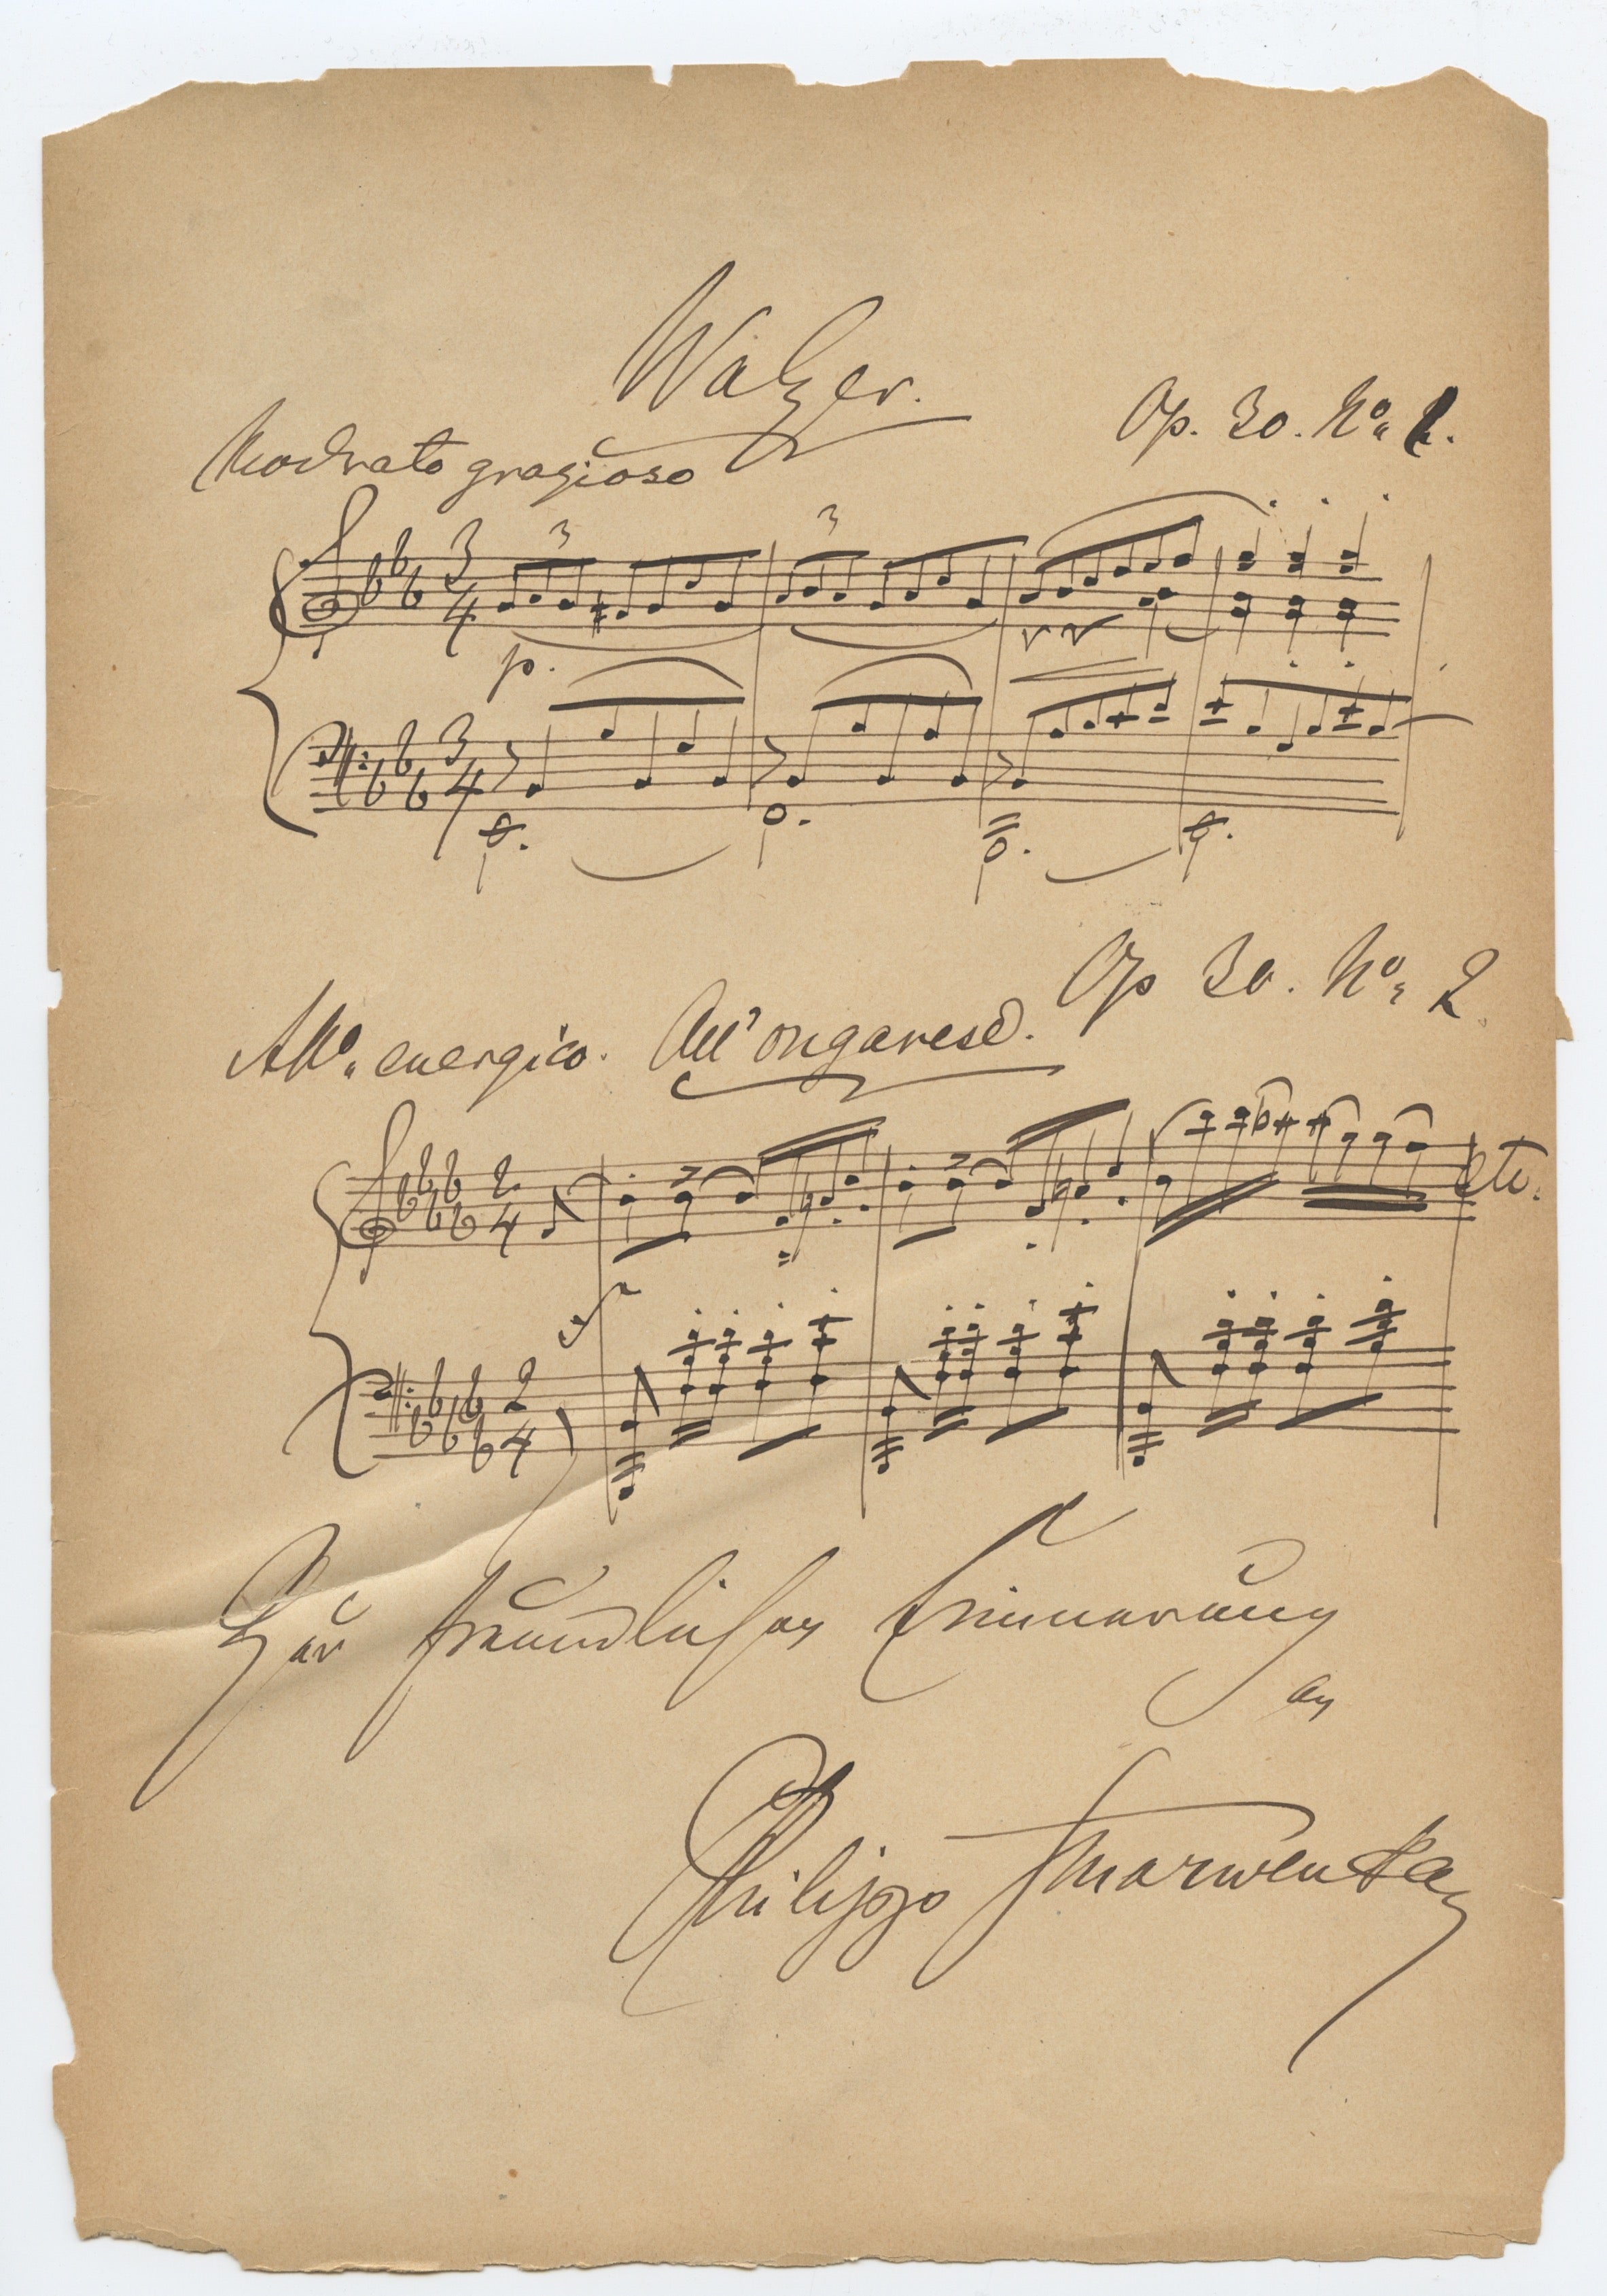 Walzer.
Op. 30. No. 1.
Moderato grazioso
3
3
3
4
p.
3
4
Op 30. No. 2
Allo. energico. All' ongarese.
2
4
etc.
f
2
4
Zur freundlichen Erinnerung
an
Philipp Scharwenka